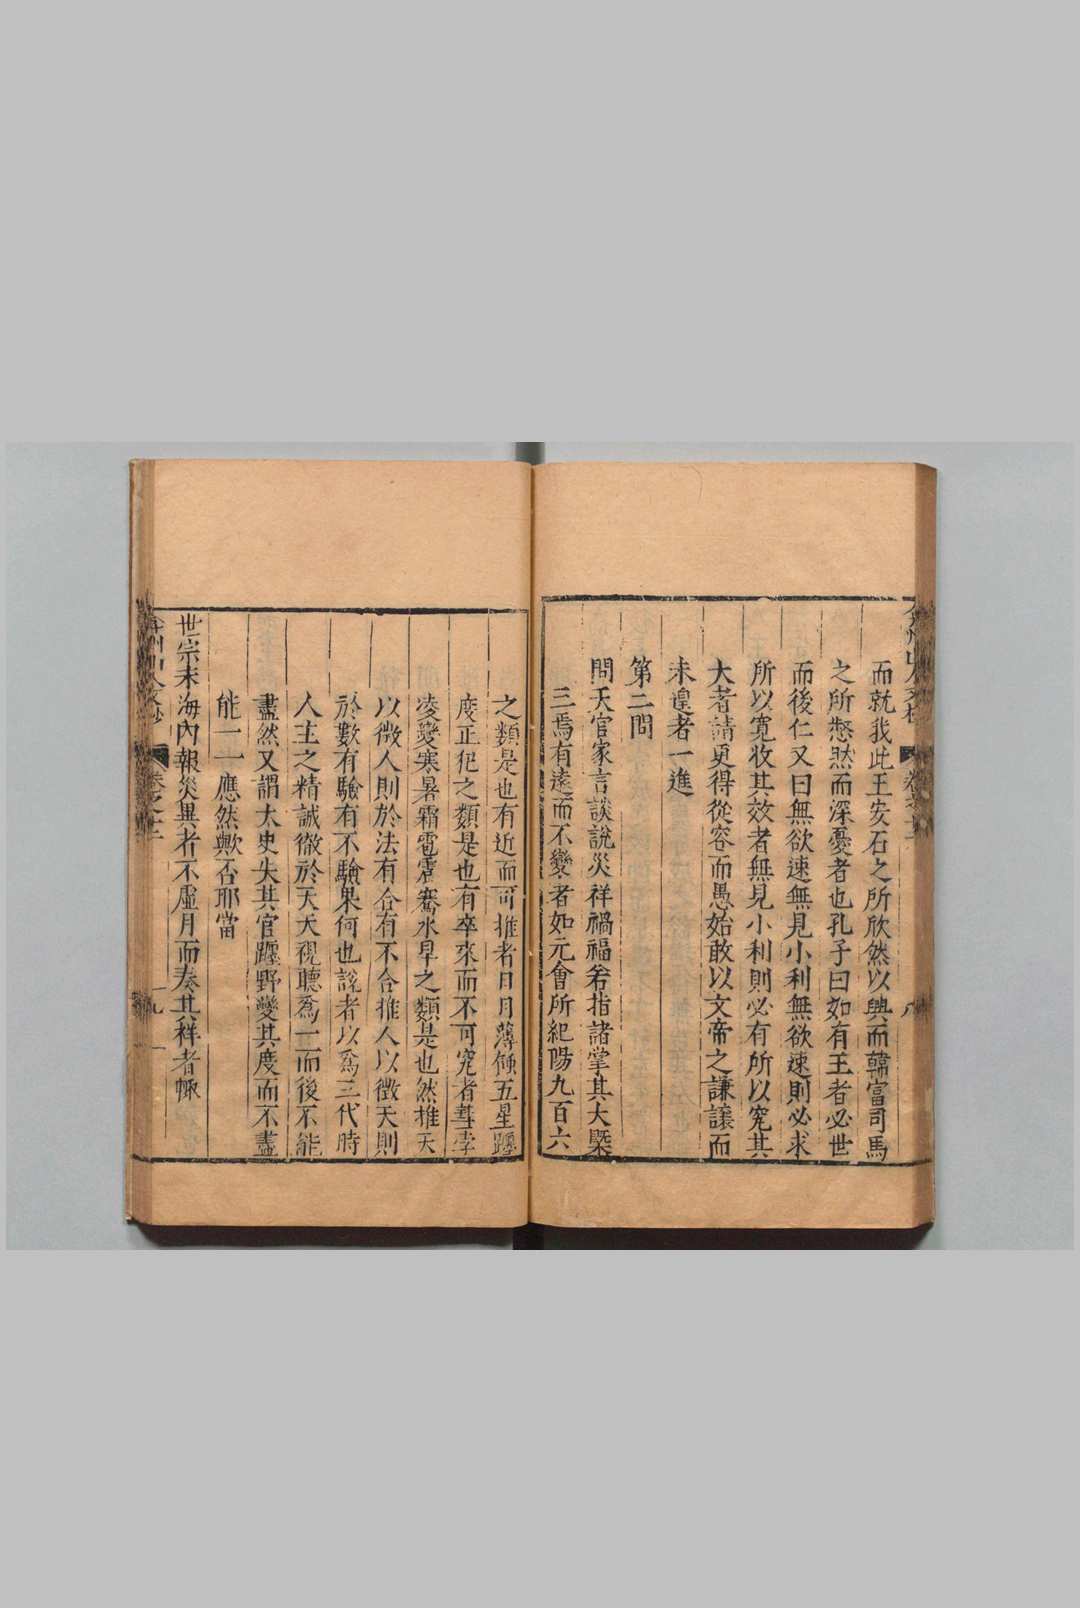 而就我此王安石之所欣然以與而韓富司馬
之所愁然而深憂者也孔子曰如有王者必世
而後仁又曰無欲速無見小利無欲速則必求
所以寬收其效者無見小利則必有所以究其
大者請更得從容而愚始敢以文帝之謙讓而
未遑者一進
第二問
問天官家言談說災祥禍福若指諸掌其大槩
三焉有遠而不變者如元會所紀陽九百六
之類是也有近而可推者日月薄蝕五星躔
度正犯之類是也有卒來而不可究者彗孛
凌變寒暑霜雹雩水旱之類是也然推天
以徵人則於法有合有不合推人以徵天則
於數有驗有不驗果何也說者以爲三代時
人主之精誠徹於天天視聽爲一而後不能
盡然又謂太史失其官躔野變其度而不盡
能一一應然歟否耶當
世宗末海內報災異者不虛月而奏其祥者輙
弇州山人文抄 卷之二 九